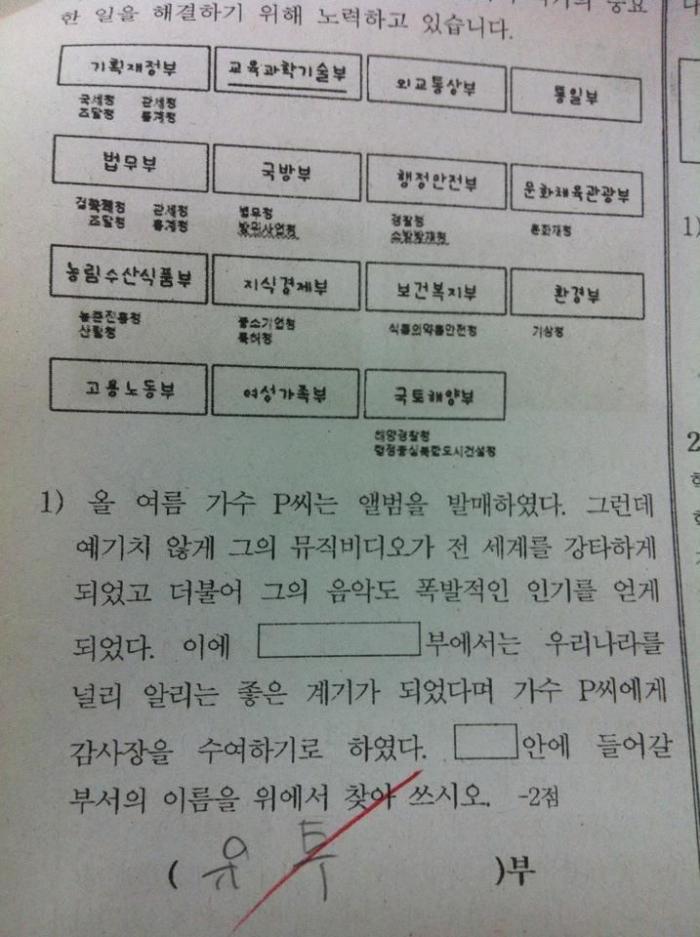 한 일을 해결하기 위해 노력하고 있습니다.
기획재정부 교육과학기술부 외교통상부 통일부
국세청 관세청
조달청 통계청
법무부 국방부 행정안전부 문화체육관광부
관세청 병무청 경찰청 문화재청
조달청 통계청 방위사업청 소방방재청
농림수산식품부 지식경제부 보건복지부 환경부
농촌진흥청 중소기업청 식품의약품안전청 기상청
산림청 특허청
고용노동부 여성가족부 국토해양부
해양경찰청
행정중심복합도시건설청
1) 올 여름 가수 P씨는 앨범을 발매하였다. 그런데
예기치 않게 그의 뮤직비디오가 전 세계를 강타하게
되었고 더불어 그의 음악도 폭발적인 인기를 얻게
되었다. 이에 부에서는 우리나라를
널리 알리는 좋은 계기가 되었다며 가수 P씨에게
감사장을 수여하기로 하였다. 안에 들어갈
부서의 이름을 위에서 찾아 쓰시오. -2점
( 유 투 )부
1)
2